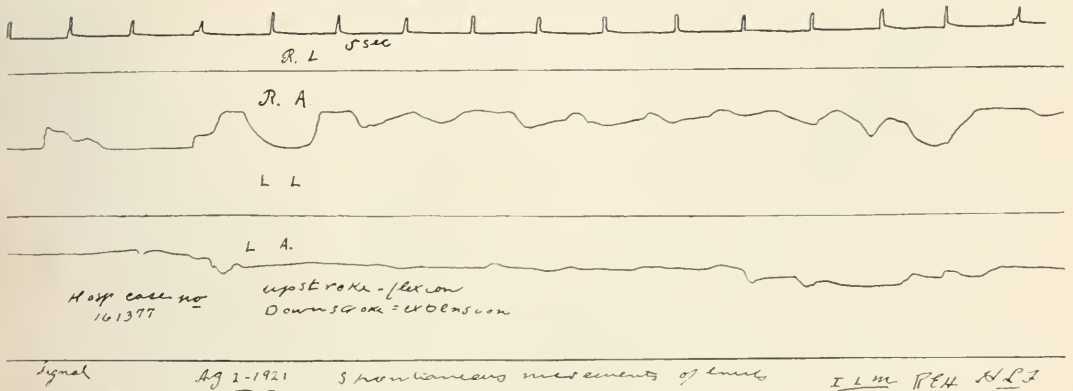 5 sec
R. L
R. A
L L
L A.
Hosp case no
161377
upstroke - flexion
Downstroke = extension
Signal Ag 2-1921 Spontaneous movements of limbs I L M REH HLF